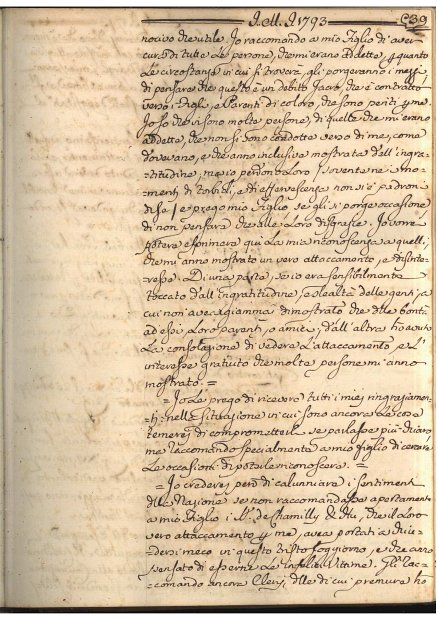 J. M. J. 1793
nocivo che utile. Io raccomando a mio Figlio di aver
cura di tutte le persone, che mi erano addette, quanto
le circostanze in cui si troverà, gli porgeranno i mezzi
di pensare che questo è un debito sacro, che è contratto
verso i Figli, e Parenti di coloro, che sono periti
Io so che vi sono molte persone, di quelle che mi erano
addette, che non si sono condotte verso di me, come
dovevano, e che anno inclusive mostrata dell'ingra-
titudine, ma io perdono Loro / sovente ne i mo-
menti di torbidi, e di effervescenza non si è padroni
di se / e prego mio Figlio se gli si porge occasione
di non pensare che alle Loro disgrazie. Io vorrei
potere esprimere qui la mia riconoscenza a quelli,
che mi anno mostrato un vero attaccamento, e disinte-
resse. Di una parte, se io era sensibilmente
toccato dall'ingratitudine, e slealtà delle genti, a
cui non aveva giammai dimostrato che delle bontà
ad essi, Loro parenti, o amici; dall'altra ho avuto
la consolazione di vedere l'attaccamento, e l'
interesse gratuito che molte persone mi anno
mostrato. =
= Io Le prego di ricevere tutti i miei ringraziamen-
ti: nella situazione in cui sono ancora le cose
temerei di comprometterle se parlasse più chiaro
ma raccomando specialmente a mio figlio di cercare
le occasioni di poterle riconoscere. =
= Io crederei però di calunniare i sentimenti
della Nazione se non raccomandasse apertamente
a mio Figlio i de Chamilly & Hu, che il Loro
vero attaccamento me, avea portati a chiu-
dersi meco in questo tristo soggiorno, e che anno
pensato di esserne le infelici vittime. Gli rac-
comando ancora Clery, delle di cui premure ho